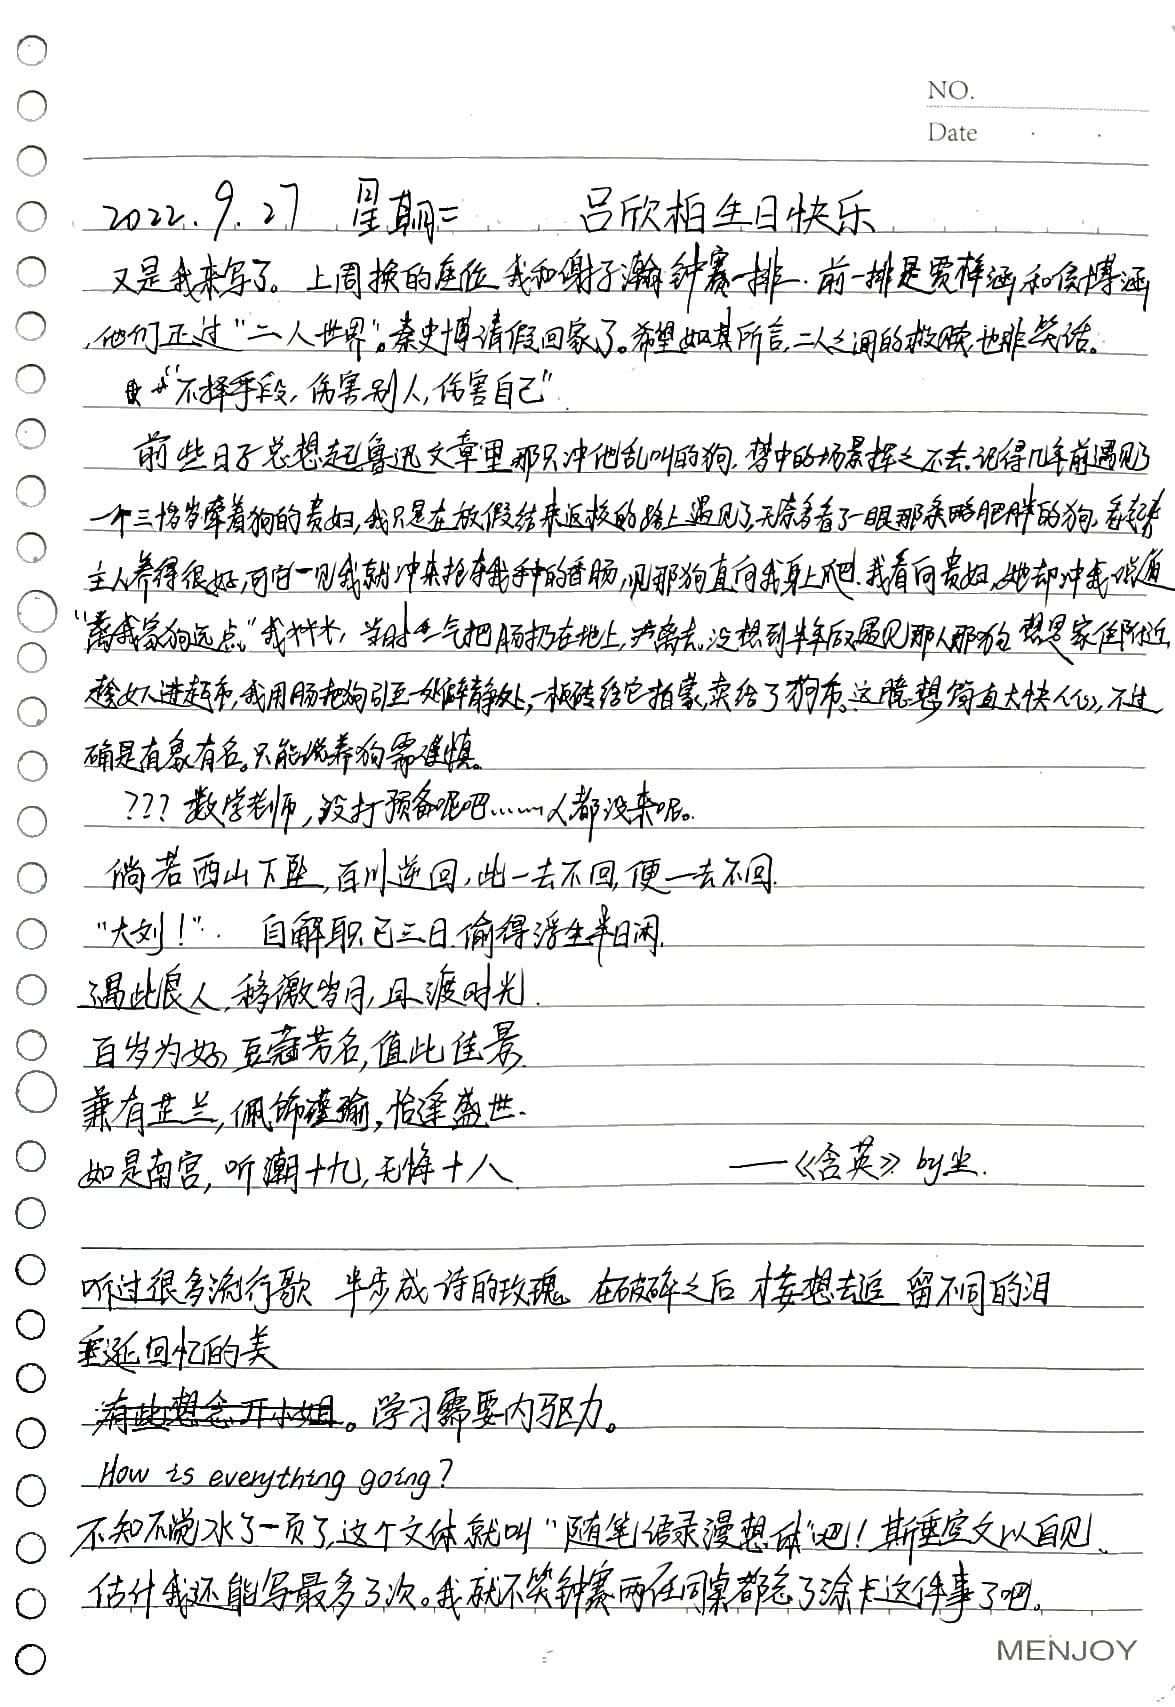 NO.
Date
2022.9.27 星期二 吕欣柏生日快乐
又是我来写了。上周换的座位,我和谢子瀚钟赛一排.前一排是贾梓涵和侯博涵
,他们正过“二人世界”。秦史博请假回家了。希望如其所言,二人之间的救赎也非笑话。
“不择手段,伤害别人,伤害自己”
前些日子总想起鲁迅文章里那只冲他乱叫的狗,梦中的场景挥之不去.记得几年前遇见了
一个三十多岁牵着狗的贵妇,我只是在放假结束返校的路上遇见了,无意多看了一眼那条略肥胖的狗,看起来
主人养得很好,可它一见我就冲来抢夺我手中的香肠,见那狗直向我身上爬.我看向贵妇,她却冲我说道
“离我家狗远点。”我 当时生气把肠扔在地上,离去。没想到半年后又遇见那人那狗 想是家住附近
趁女人进超市,我用肠把狗引至一处僻静处,一板砖给它拍蒙,卖给了狗市。这臆想简直大快人心,不过
确是有象有名。只能说养狗需谨慎。
???数学老师,没打预备呢吧……人都没来呢。
倘若西山下坠,百川逆回,此一去不回,便一去不回.
“大刘!”. 自解职已三日.偷得浮生半日闲.
遇此良人,移微岁月,且渡时光.
百岁为好,豆蔻芳名,值此佳景.
兼有芷兰,佩饰瑾瑜,恰逢盛世.
如是南宫,听潮十九,无悔十八 ——《含英》by尘.
听过很多流行歌 半步成诗的玫瑰 在破碎之后 才妄想去追 留不同的泪
垂涎回忆的美
有些想念丌小姐。学习需要内驱力。
How is everything going?
不知不觉水了一页了,这个文体就叫“随笔语录漫想体”吧!斯垂空文以自见、
估计我还能写最多了次。我就不笑钟赛两任同桌都忘了涂卡这件事了吧。
MENJOY